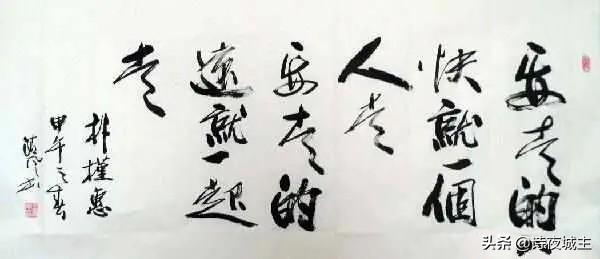 要走的
快就一個
人走
要走的
遠就一起
走
朴槿惠
甲午之春
头条@诗夜城主